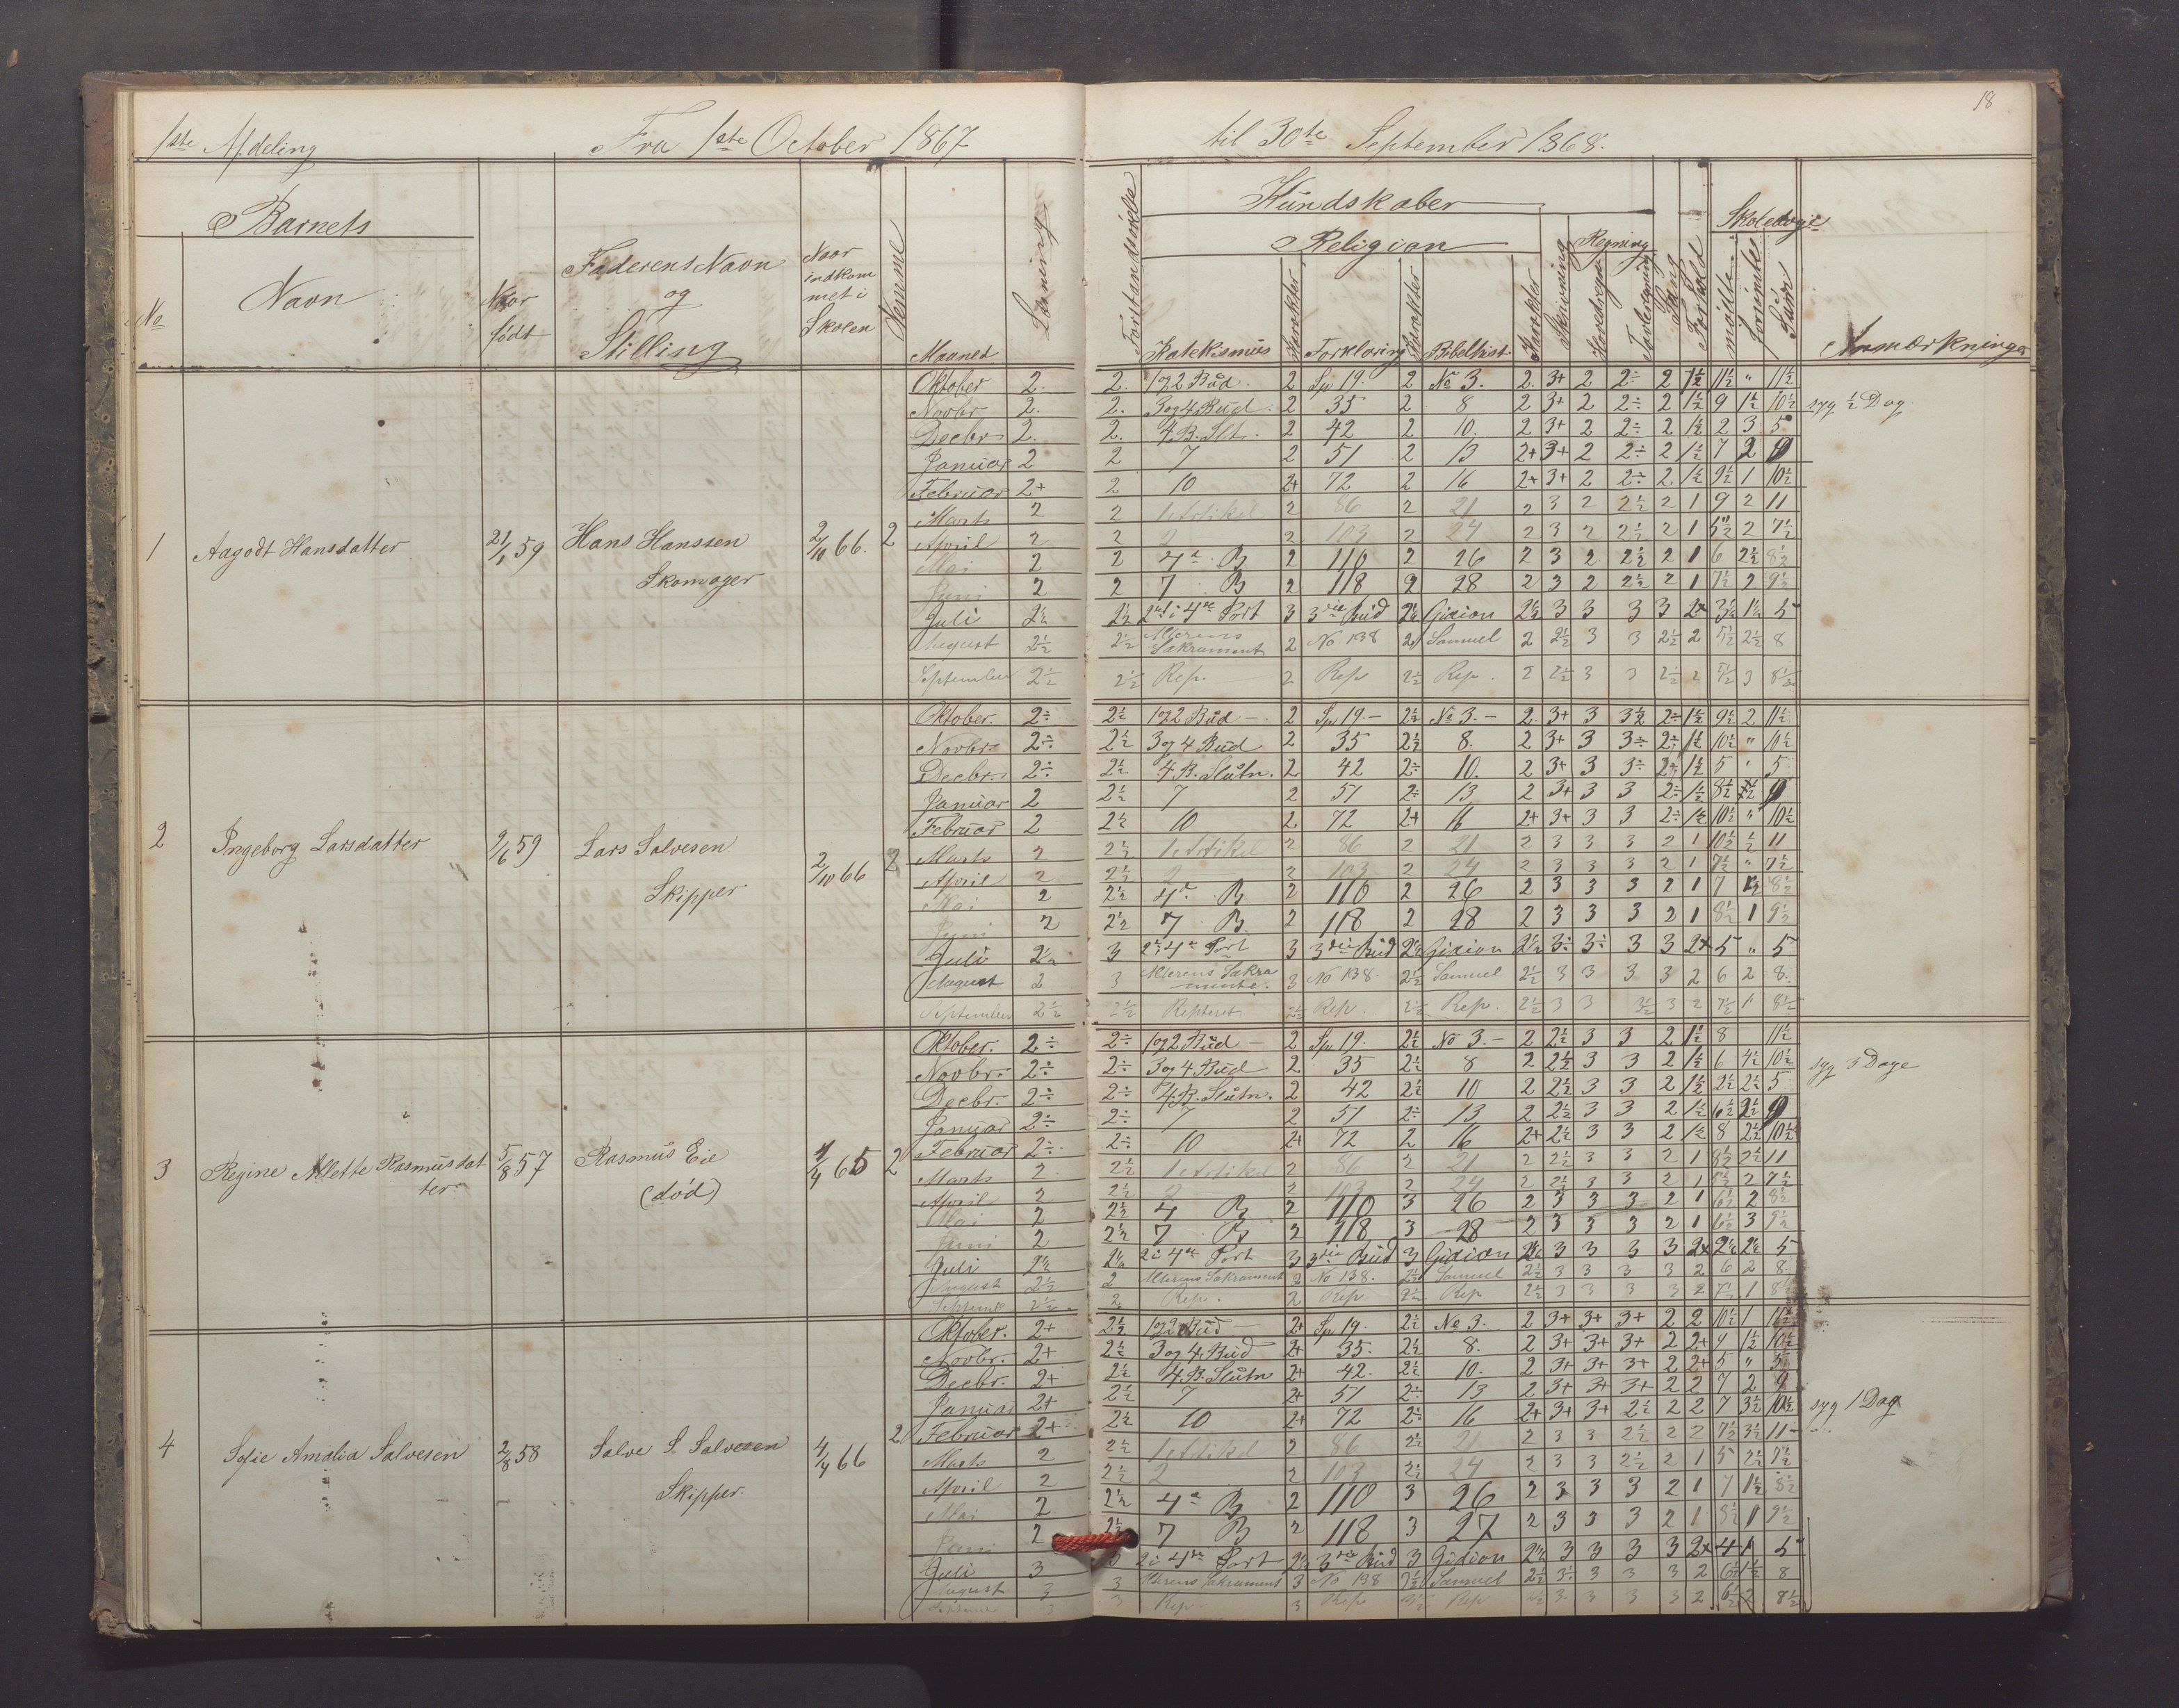 18
1ste Afdeling Fra 1ste October 1867 til 30te September 1868.
Barnets
No Navn Naar født Faderens Navn og Stilling Naar indkommet i Skolen Nemme Maaned Læsning
Kundskaber
Religion Skrivning Regning Sang Forhold Skoledage
Katekismus Karakter Forklaring Karakter Bibelhist. Karakter Hovedregn. Tavleregning mødte forsømte Sum Anmærkninger
1 Aagodt Hansdatter 21/1 59 Hans Hanssen Skomager 2/10 66. 2
Oktober 2. 2. 1 og 2 Bud. 2 Sp 19. 2 No 3. 2. 3+ 2 2÷ 2 1½ 11½ " 11½
Novbr. 2. 2. 3 og 4 Bud. 2 35 2 8 2 3+ 2 2÷ 2 1½ 9 1½ 10½ syg ½ Dag
Decbr. 2. 2. 4. B. Slt. 2 42 2 10. 2 3+ 2 2÷ 2 1½ 2 3 5
Januar 2 2 7 2 51 2 13 2+ 3+ 2 2÷ 2 1½ 7 2 9
Februar 2+ 2 10 2+ 72 2 16 2+ 3+ 2 2÷ 2 1½ 9½ 1 10½
Marts 2 2 1 Artikel 2 86 2 21 2 3 2 2½ 2 1 9 2 11
April 2 2 2 2 103 2 24 2 3 2 2½ 2 1 5½ 2 7½
Mai 2 2 4de B 2 110 2 26 2 3 2 2½ 2 1 6 2½ 8½
Juni 2 2 7 B 2 118 2 28 2 3 2 2½ 2 1 7½ 2 9½
Juli 2½ 2½ 2 i 4de Part 3 3die Bud 2½ Gideon 2½ 3 3 3 3 2+ 3½ 1½ 5
August 2½ 2½ Alterens Sakrament 2 No 138 2 Samuel 2 2½ 3 3 2½ 2 5½ 2½ 8
September 2½ 2½ Rep. 2 Rep 2½ Rep. 2 2½ 3 3 2½ 2 5½ 3 8½
2 Ingeborg Larsdatter 9/6 59 Lars Salvesen Skipper 2/10 66 2
Oktober. 2÷ 2½ 1 og 2 Bud 2 Sp 19. 2½ No 3. 2. 3+ 3 3½ 2÷ 1½ 9½ 2 11½
Novbr. 2÷ 2½ 3 og 4 Bud 2 35 2½ 8. 2 3+ 3 3÷ 2÷ 1½ 10½ " 10½
Decbr. 2÷ 2½ 4. B. Slutn. 2 42 2÷ 10. 2 3+ 3 3÷ 2÷ 1½ 5 " 5
Januar 2 2½ 7 2 51 2÷ 13 2 3+ 3 3 2÷ 1½ 8½ ½ 9
Februar 2 2½ 10 2 72 2+ 16 2+ 3+ 3 3 2÷ 1½ 10½ " 10½
Marts 2 2½ 1 Artikel 2 86 2 21 2 3 3 3 2 1 10½ ½ 11
April 2 2½ 2 2 103 2 24 2 3 3 3 2 1 7½ " 7½
Mai 2 2½ 4de B. 2 110 2 26 2 3 3 3 2 1 7 1½ 8½
Juni 2 2½ 7 B. 2 118 2 28 2 3 3 3 2 1 8½ 1 9½
Juli 2½ 3 2 i 4de Part 3 3die Bud 2½ Gideon 2½ 3÷ 3÷ 3 3 2+ 5 " 5
August 2 3 Alterens Sakramente. 3 No 138. 2½ Samuel 2½ 3 3 3 3 2 6 2 8.
September 2½ 2½ Repteret 2½ Rep. 2½ Rep. 2½ 3 3 3½ 3 2 7½ 1 8½
3 Regine Mette Rasmusdatter 5/8 57 Rasmus Eie (død) 4/4 65 2
Oktober. 2÷ 2÷ 1 og 2 Bud 2 Sp 19. 2½ No 3. 2 2½ 3 3 2 1½ 8 11½
Novbr. 2÷ 2÷ 3 og 4 Bud 2 35 2½ 8 2 2½ 3 3 2 1½ 6 4½ 10½ syg 3 Dage
Decbr. 2÷ 2÷ 4. B. Slutn. 2 42 2½ 10 2 2½ 3 3 2 1½ 2½ 2½ 5
Januar 2÷ 2÷ 7 2 51 2÷ 13 2 2½ 3 3 2 1½ 6½ 2½ 9
Februar 2÷ 2÷ 10 2+ 72 2 16 2+ 2½ 3 3 2 1½ 8 2½ 10½
Marts 2 2½ 1 Artikel 2 86 2 21 2 2½ 3 3 2 1 8½ 2½ 11
April 2 2½ 2 2 103 2 24 2 2½ 3 3 2 1 5½ 2 7½
Mai 2 2½ 4 B 2 110 3 26 2 3 3 3 2 1 6½ 2 8½
Juni 2 2½ 7 B 2 118 3 28 2 3 3 3 2 1 6½ 3 9½
Juli 2½ 2½ 2 i 4de Part 3 3die Bud 3 Gideon 2½ 3 3 3 3 2+ 2½ 2½ 5
August 2½ 2 Alterens Sakrament 2 No 138. 2½ Samuel 2½ 3 3 3 3 2 6 2 8.
Septemb 2½ 2 Rep. 2 Rep 2½ Rep 2½ 3 3 3 3 2 7½ 1 8½
4 Sofie Amalia Salvesen 2/8 58 Salve S. Salvesen Skipper. 4/4 66 2
Oktober. 2+ 2½ 1 og 2 Bud 2+ Sp 19. 2½ No 3. 2 3+ 3+ 3+ 2 2 10½ 1 11½
Novbr. 2+ 2½ 3 og 4 Bud 2+ 35. 2½ 8. 2 3+ 3+ 3+ 2 2+ 9 1½ 10½
Decbr. 2+ 2½ 4. B. Slutn 2+ 42. 2½ 10. 2 3+ 3+ 3+ 2 2+ 5 " 5
Januar 2+ 2½ 7 2+ 51 2÷ 13 2 3+ 3+ 3+ 2 2 7 2 9
Februar 2+ 2½ 10 2+ 72 2÷ 16 2+ 3+ 3+ 2½ 2 2 7 3½ 10½ syg 1 Dag
Marts 2 2½ 1 Artikel 2 86 2½ 21 2 3 3 2½ 2 2 7½ 3½ 11
April 2 2½ 2 2 103 2½ 24 2 3 3 2½ 2 1 5 2½ 7½
Mai 2 2½ 4de B. 2 110 3 26 2 3 3 3 2 1 7 1½ 8½
Juni 2 2½ 7 B 2 118 3 27 2 3 3 3 2 1 8½ 1 9½
Juli 3 2 i 4de Part 2½ 3die Bud 3 Gideon 2½ 3 3 3 3 2+ 4 1 5
August 3 3 Alterens Sakrament 3 No 138 2½ Samuel 2½ 3÷ 3 3 3 2 6½ 1½ 8
3 3 Rep. 3 Rep Rep 3 3 3 3 2 6½ 2 8½